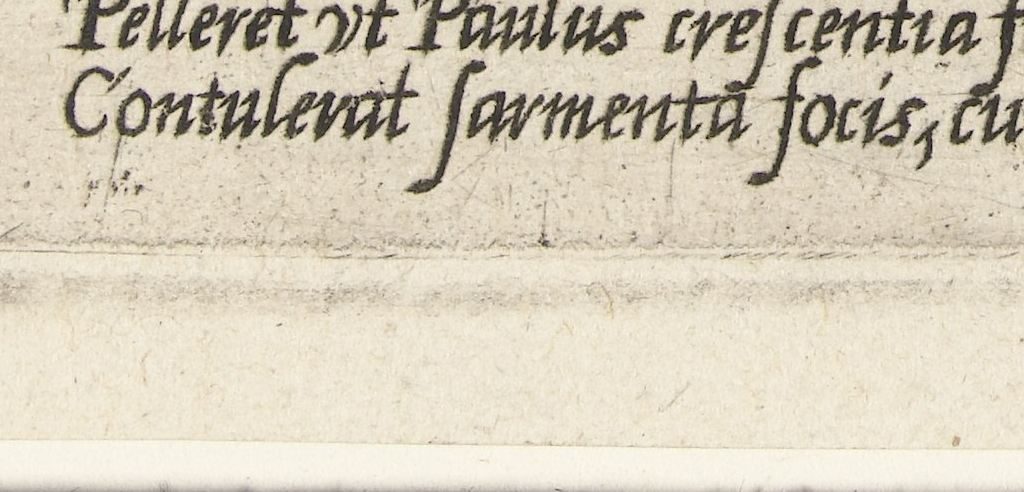 Pelleret vt Paulus creſcentia f
Contulerat ſarmenta focis, cu